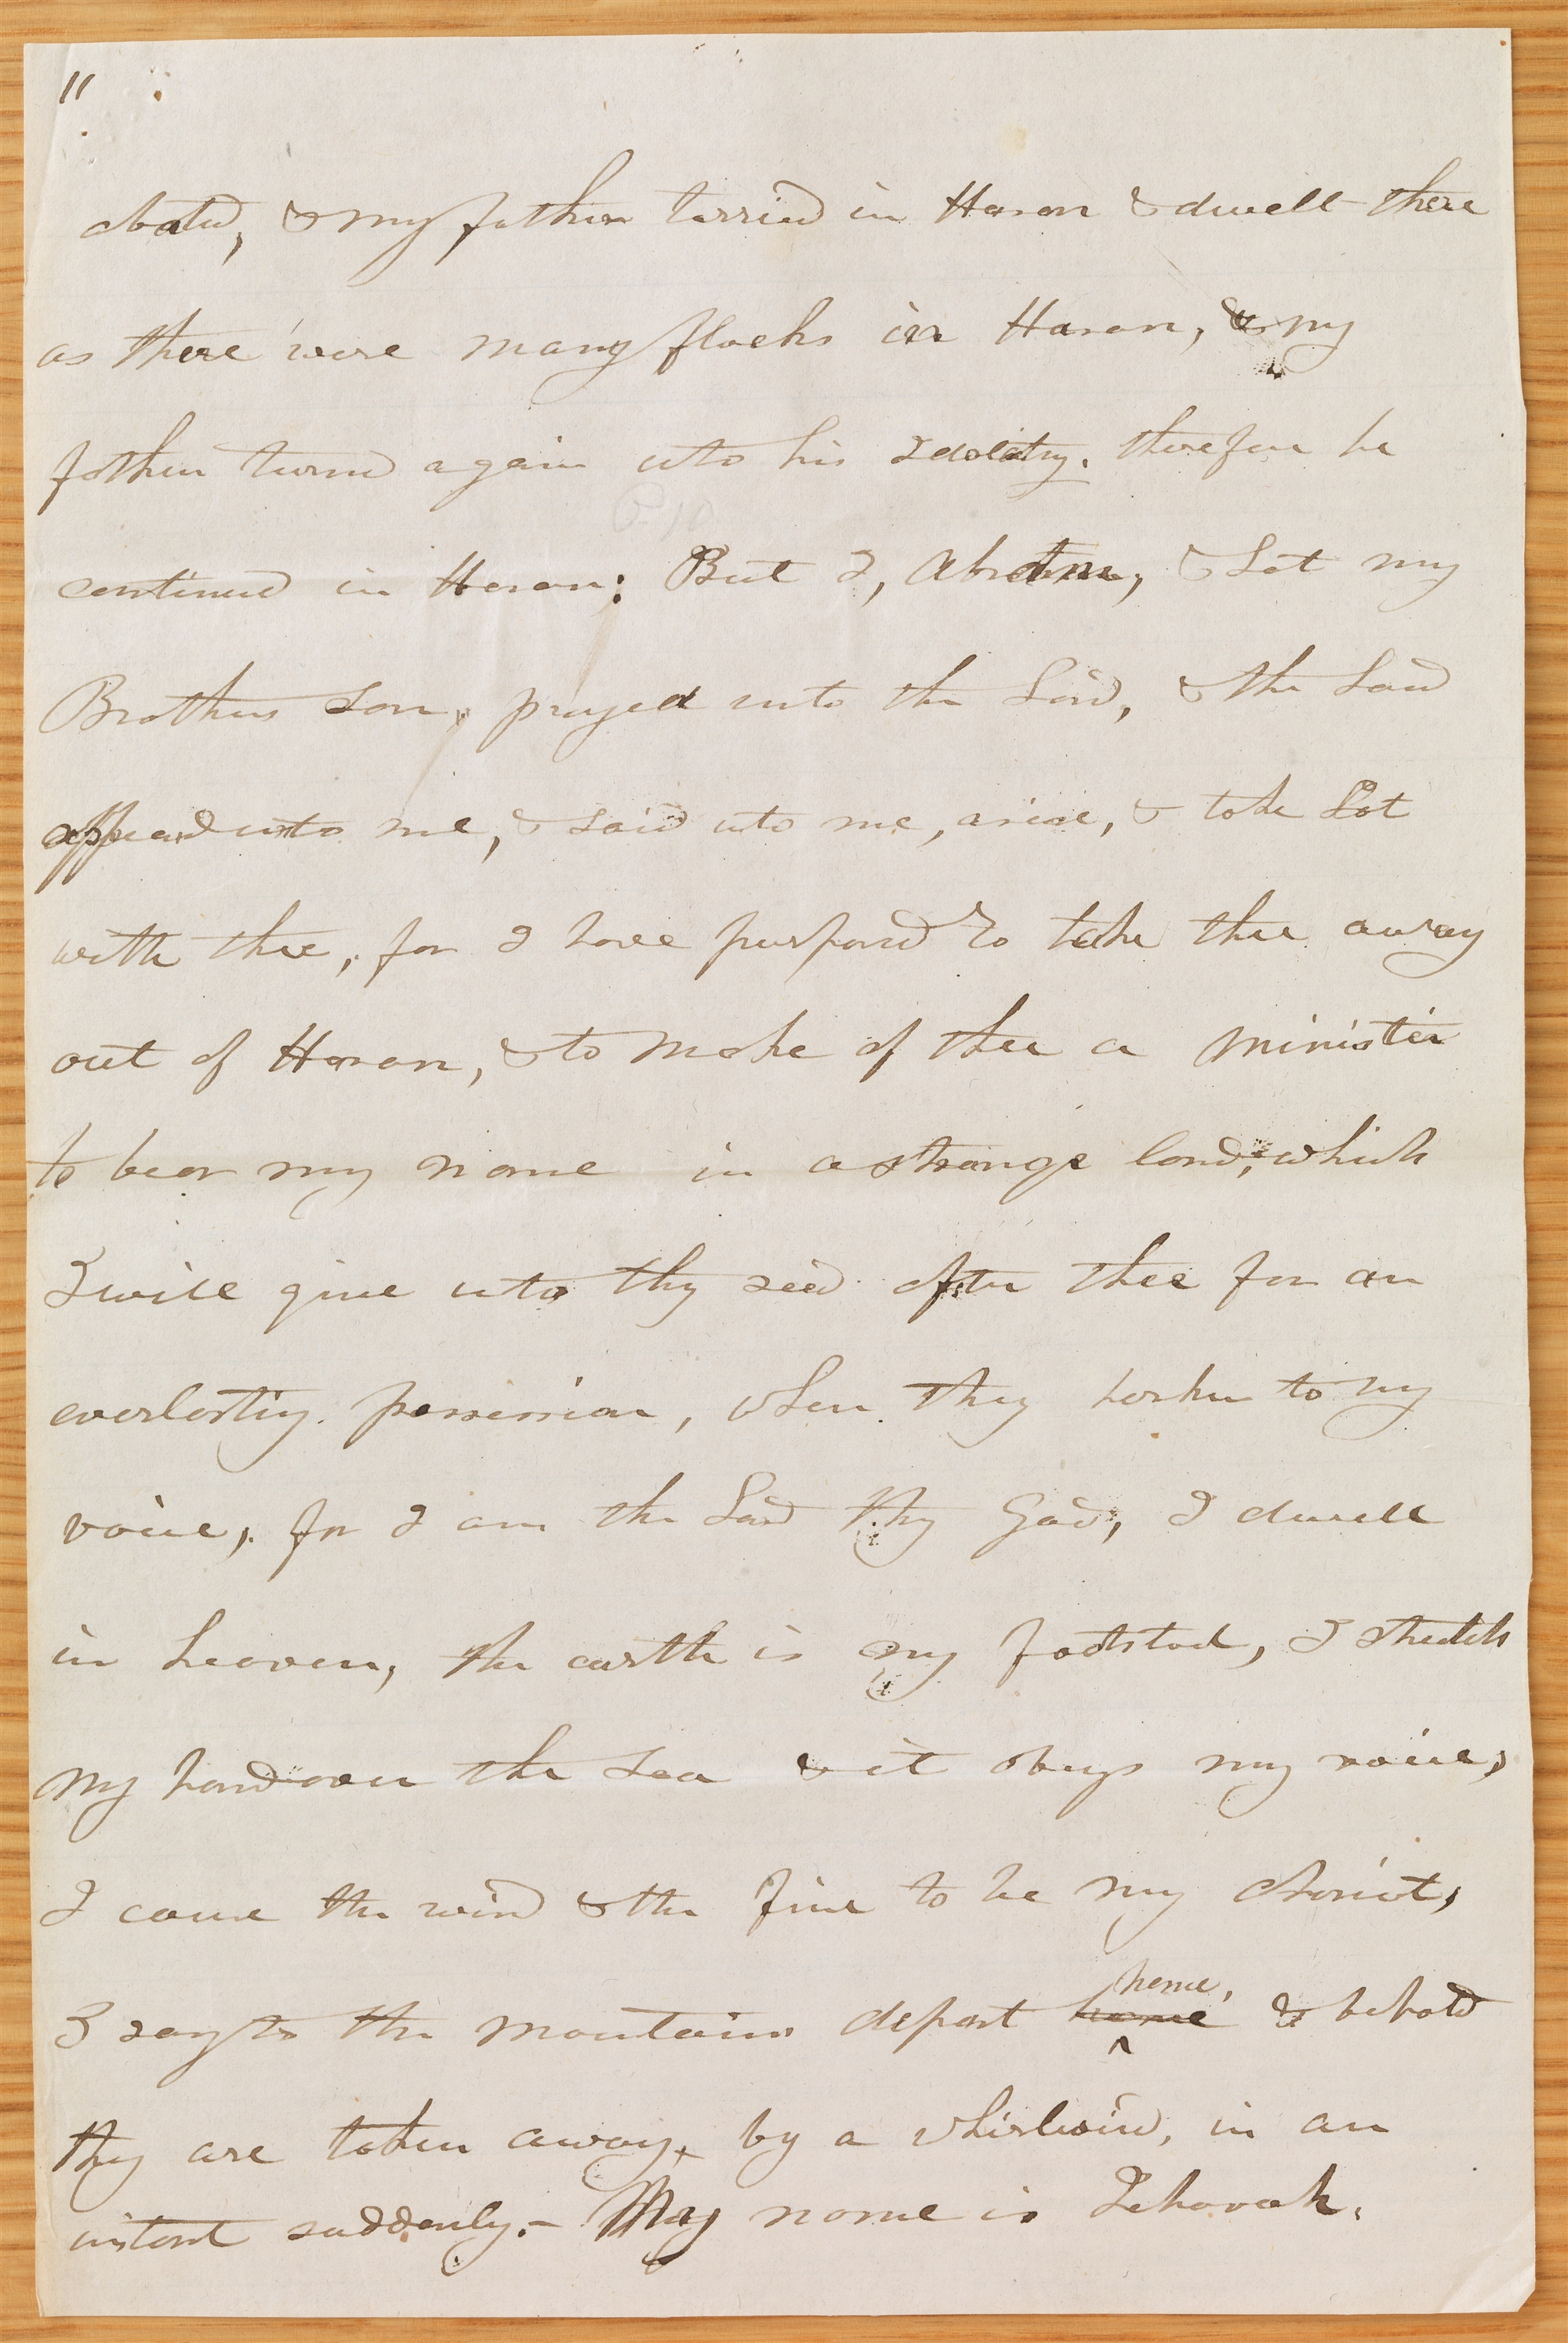 11
abated, & my father tarried in Haran & dwelt there
as there were many flocks in Haran, & my
father turned again unto his Idolitry. therefore he
continued in Haran; But I, Abram, & Lot my
Brothers son, prayed unto the Lord, & the Lord
appeared unto me, & said unto me, arise, & take Lot
with thee, for I have purposed to take thee away
out of Haran, & to make of thee a minister
to bear my name in a strange land, which
I will give unto thy seed after thee for an
everlasting possession, when they harken to my
voice, for I am the Lord thy God, I dwell
in heaven, the earth is my footstool, I stretch
my hand over the sea & it obeys my voice,
I cause the wind & the fire to be my chariot,
I say to the mountains depart home hence, & behold
they are taken away, by a whirlwind, in an
instant suddenly.- My name is Jehovah.